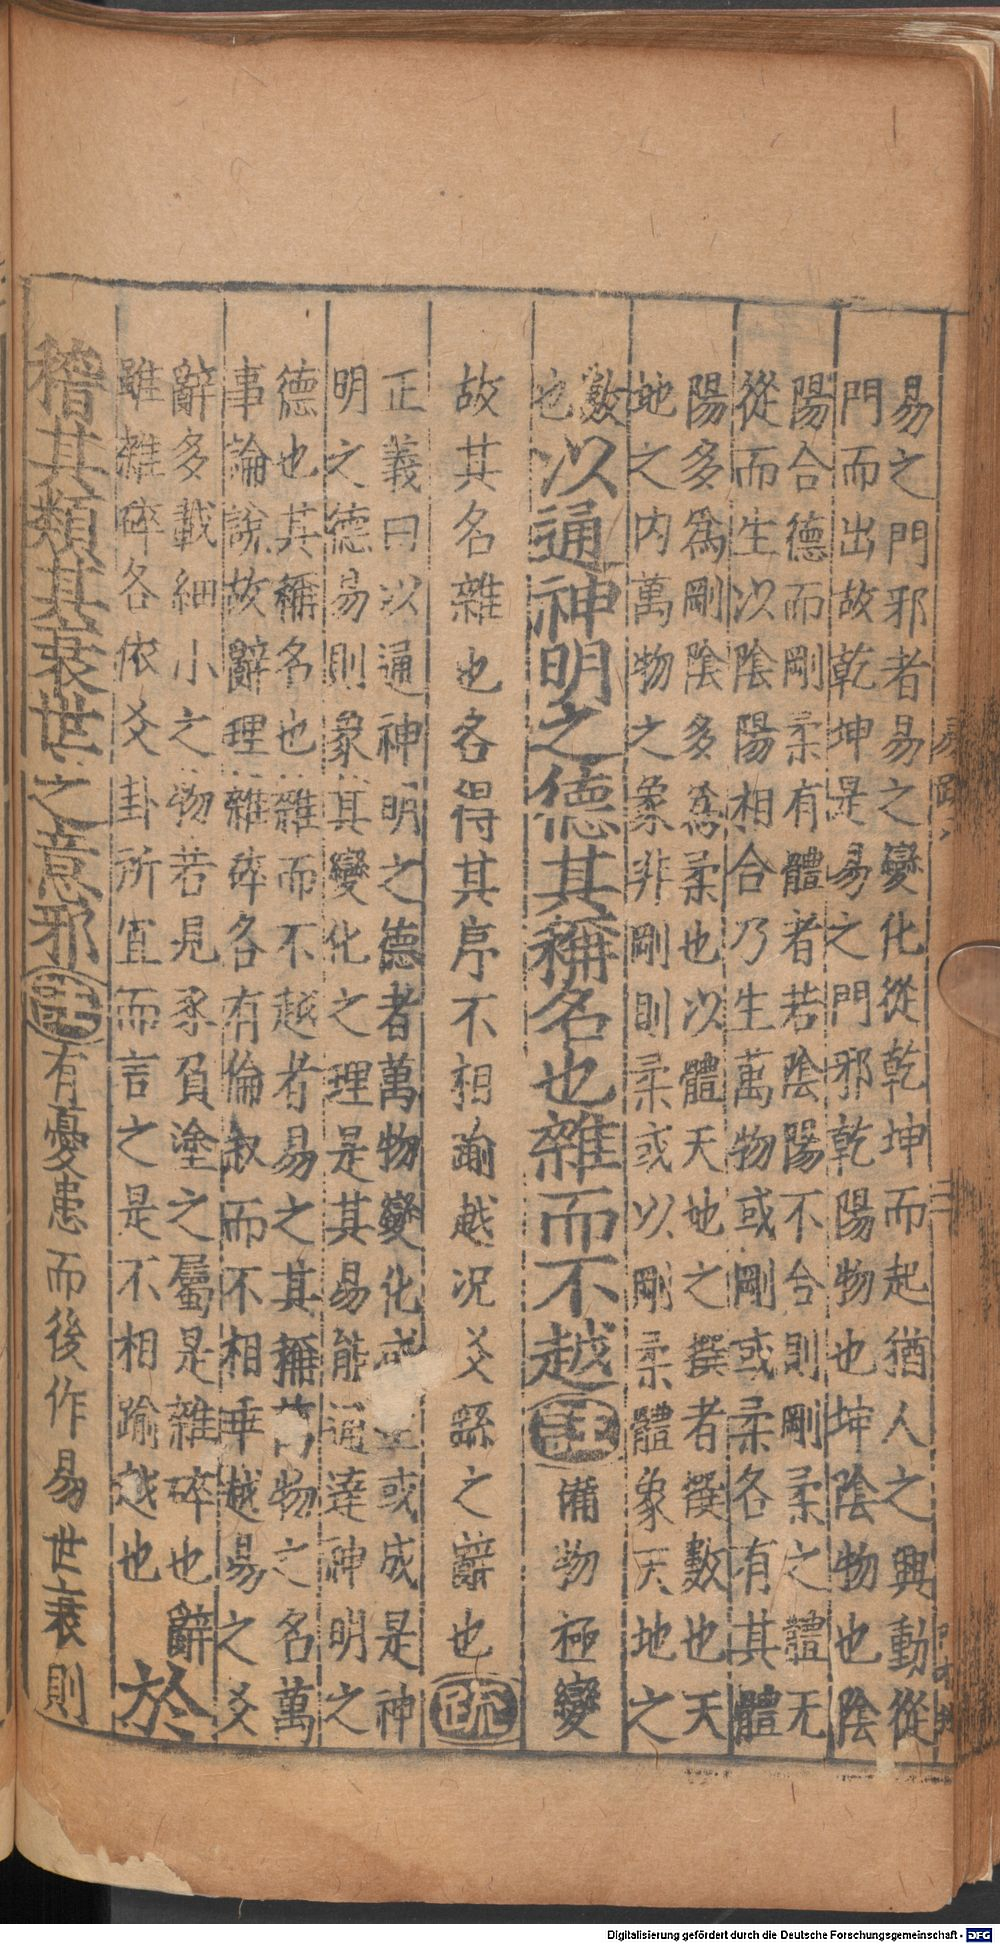 易之門邪者易之變化從乾坤而起猶人之興動從
門而出故乾坤是易之門邪乾陽物也坤陰物也陰
陽合德而剛柔有體者若陰陽不合則剛柔之體无
從而生以陰陽相合乃生萬物或剛或柔各有其體
陽多爲剛陰多爲柔也以體天地之撰者撰數也天
地之内萬物之象非剛則柔或以剛柔體象天地之
數
也
以通神明之德其稱名也雜而不越
註
備物極變
故其名雜也各得其序不相踰越況爻繇之辭也
疏
正義曰以通神明之德者萬物變化或生或成是神
明之德易則象其變化之理是其易能通達神明之
德也其稱名也雜而不越者易之其稱萬物之名萬
事論說故辭理雜碎各有倫叙而不相乖越易之爻
辭多載細小之物若見豕負塗之屬是雜碎也辭
雖雜碎各依爻卦所宜而言之是不相踰越也
於
稽其類其衰世之意邪
註
有憂患而後作易世衰則
Digitalisierung gefördert durch die Deutsche Forschungsgemeinschaft - DFG